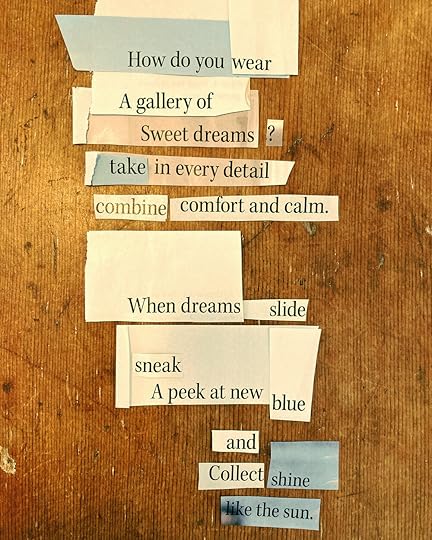 How do you wear
A gallery of
Sweet dreams ?
take in every detail
combine comfort and calm.
When dreams slide
sneak
A peek at new blue
and
Collect shine
like the sun.